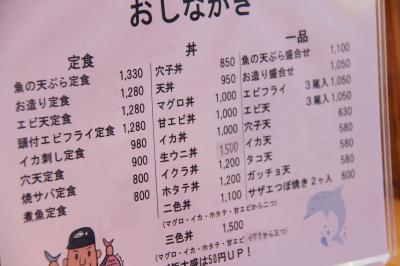 おしながき
定食
魚の天ぷら定食 1,330
お造り定食 1,280
エビ天定食 1,280
頭付エビフライ定食 1,280
イカ刺し定食 980
穴天定食 900
焼サバ定食 800
煮魚定食 800
丼
穴子丼 850
天丼 950
マグロ丼 1,000
甘エビ丼 1,000
イカ丼 1,000
生ウニ丼 1,500
イクラ丼 1,200
ホタテ丼 1,200
二色丼 1,100
(マグロ・イカ・ホタテ・甘エビから二つ)
三色丼 1,500
(マグロ・イカ・ホタテ・甘エビ から三つ)
大盛は50円UP!
一品
魚の天ぷら盛合せ 1,100
お造り盛合せ 1,050
エビフライ 3尾入 1,050
エビ天 3尾入 1,050
穴子天 630
イカ天 580
タコ天 580
ガッチョ天 580
サザエつぼ焼き2ヶ入 600